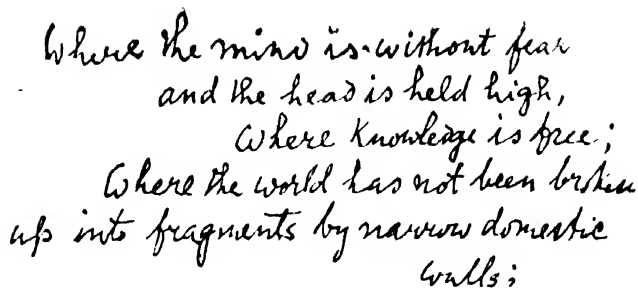 Where the mind is without fear
and the head is held high,
Where Knowledge is free;
Where the world has not been broken
up into fragments by narrow domestic
walls;